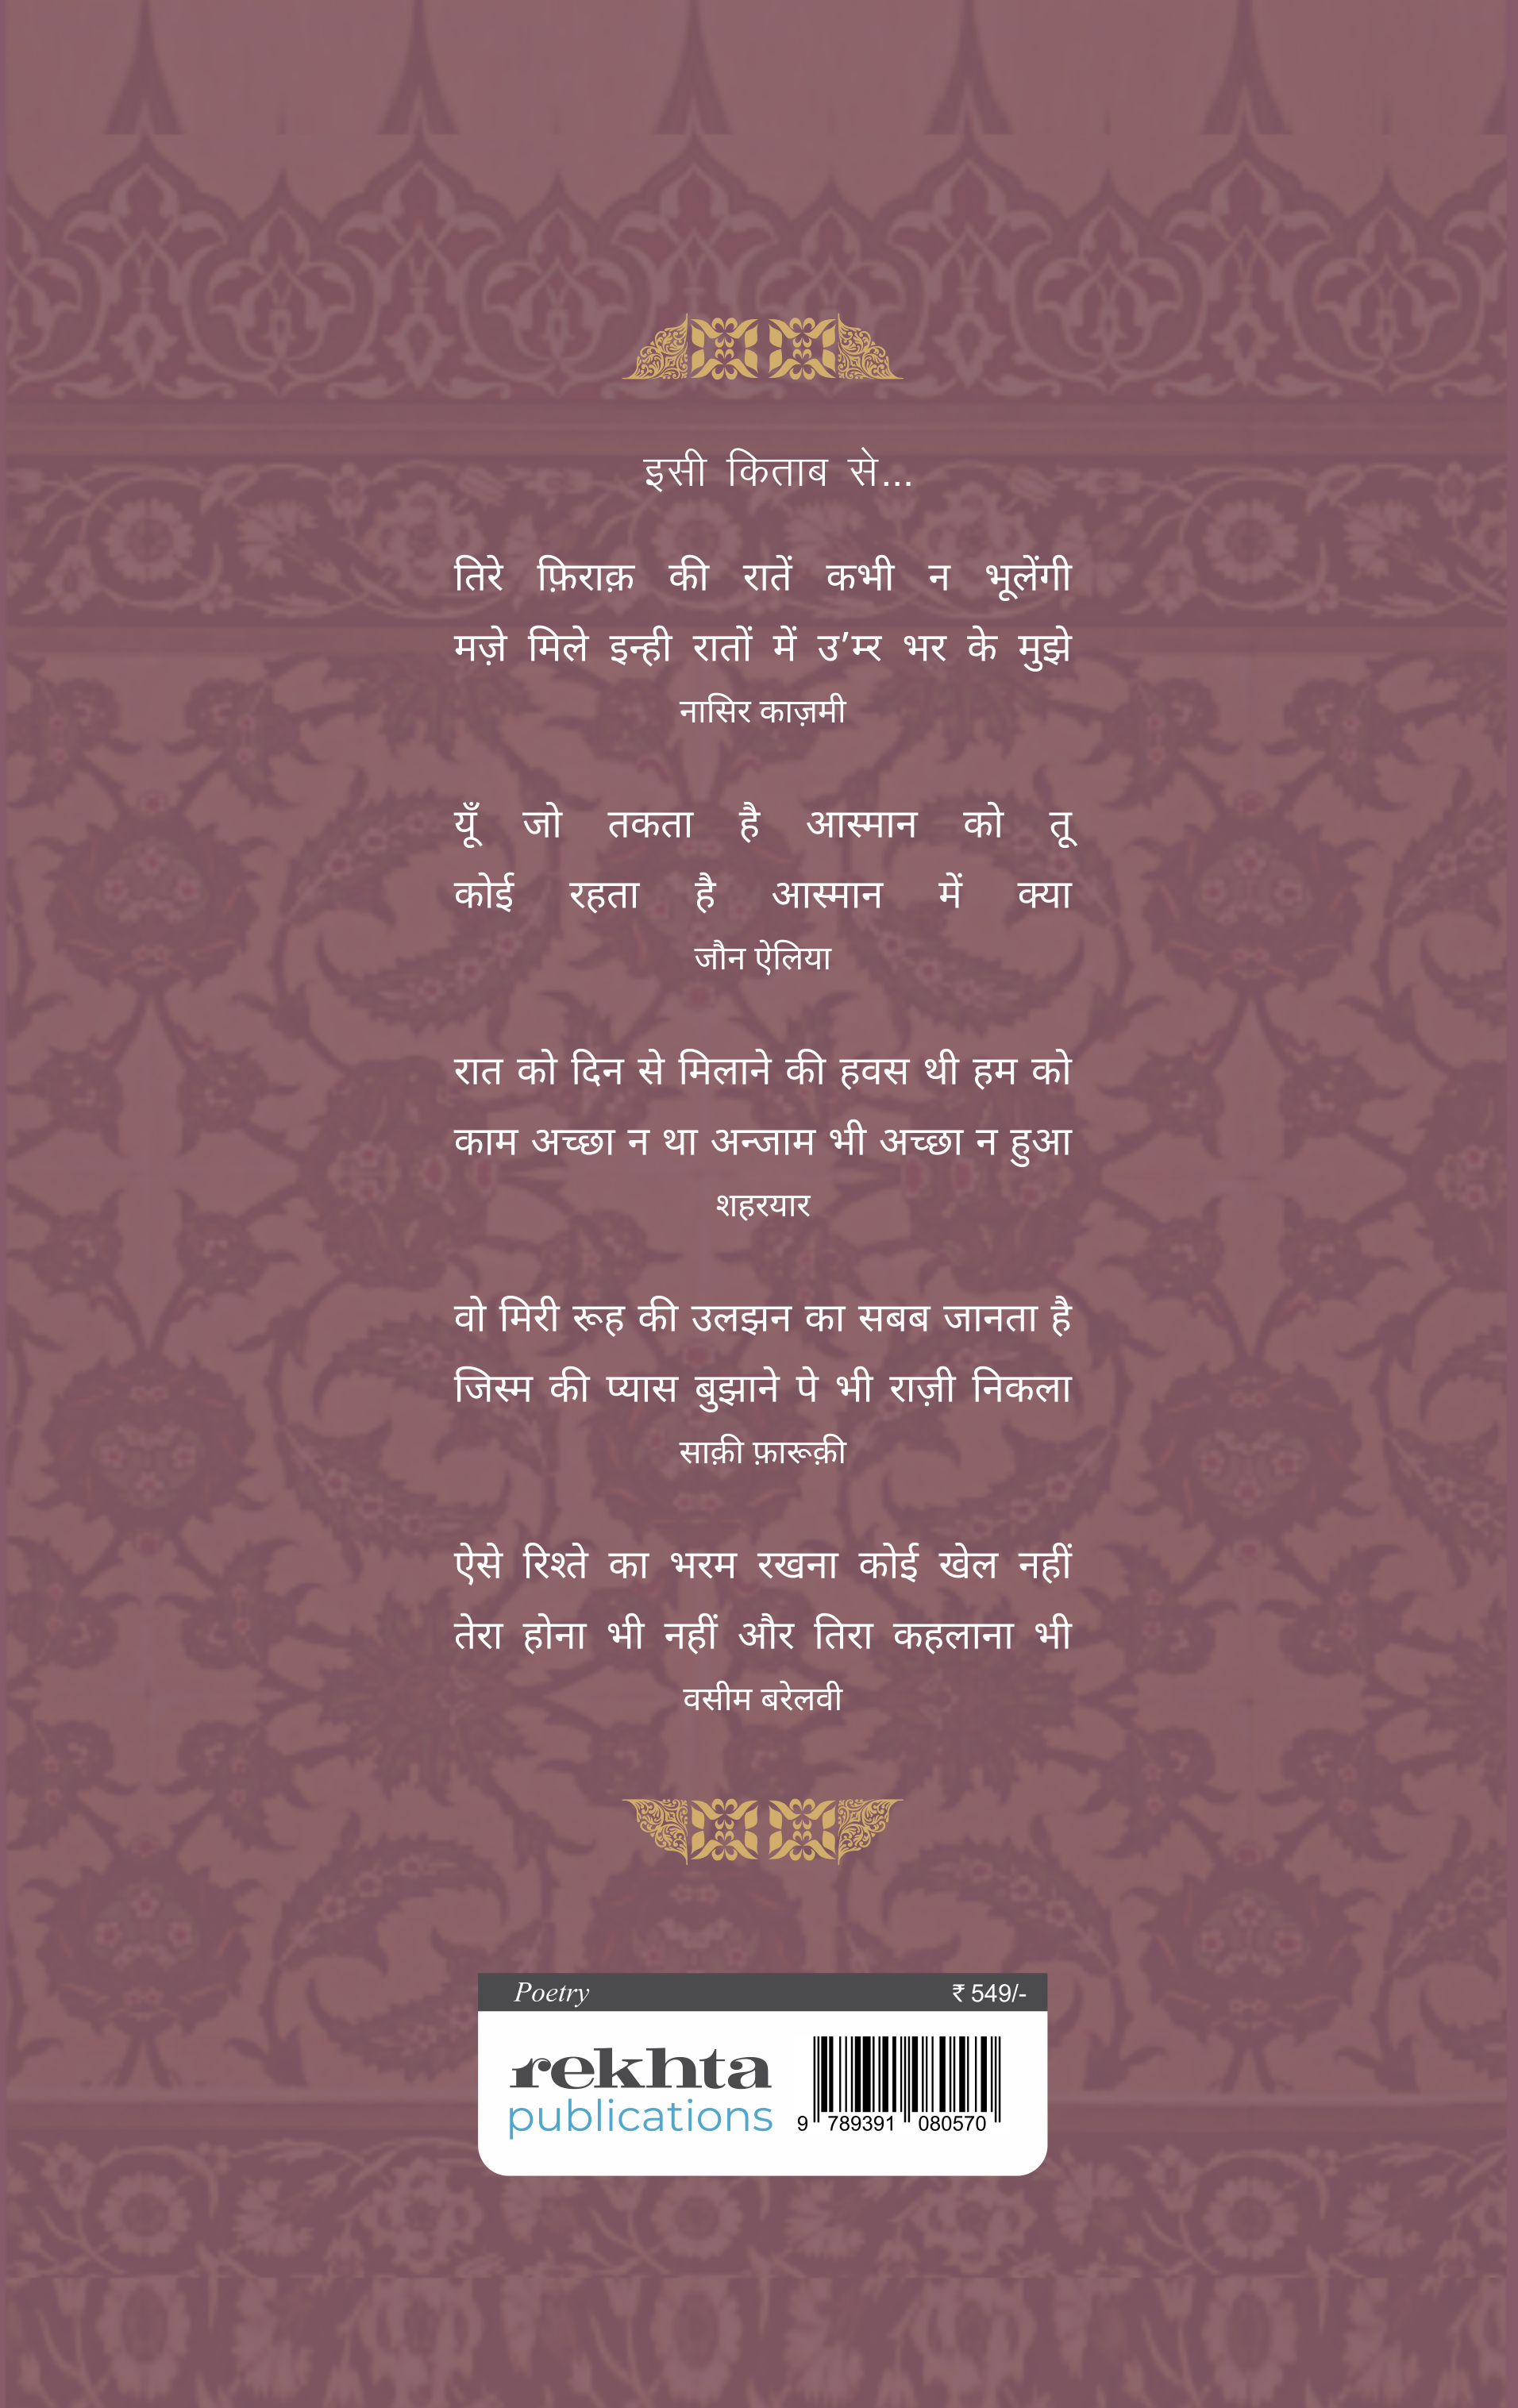 इसी किताब से...
तिरे फ़िराक़ की रातें कभी न भूलेंगी
मज़े मिले इन्ही रातों में उ’म्र भर के मुझे
नासिर काज़मी
यूँ जो तकता है आस्मान को तू
कोई रहता है आस्मान में क्या
जौन ऐलिया
रात को दिन से मिलाने की हवस थी हम को
काम अच्छा न था अन्जाम भी अच्छा न हुआ
शहरयार
वो मिरी रूह की उलझन का सबब जानता है
जिस्म की प्यास बुझाने पे भी राज़ी निकला
साक़ी फ़ारूक़ी
ऐसे रिश्ते का भरम रखना कोई खेल नहीं
तेरा होना भी नहीं और तिरा कहलाना भी
वसीम बरेलवी
Poetry ₹ 549/-
rekhta
publications
9 789391 080570